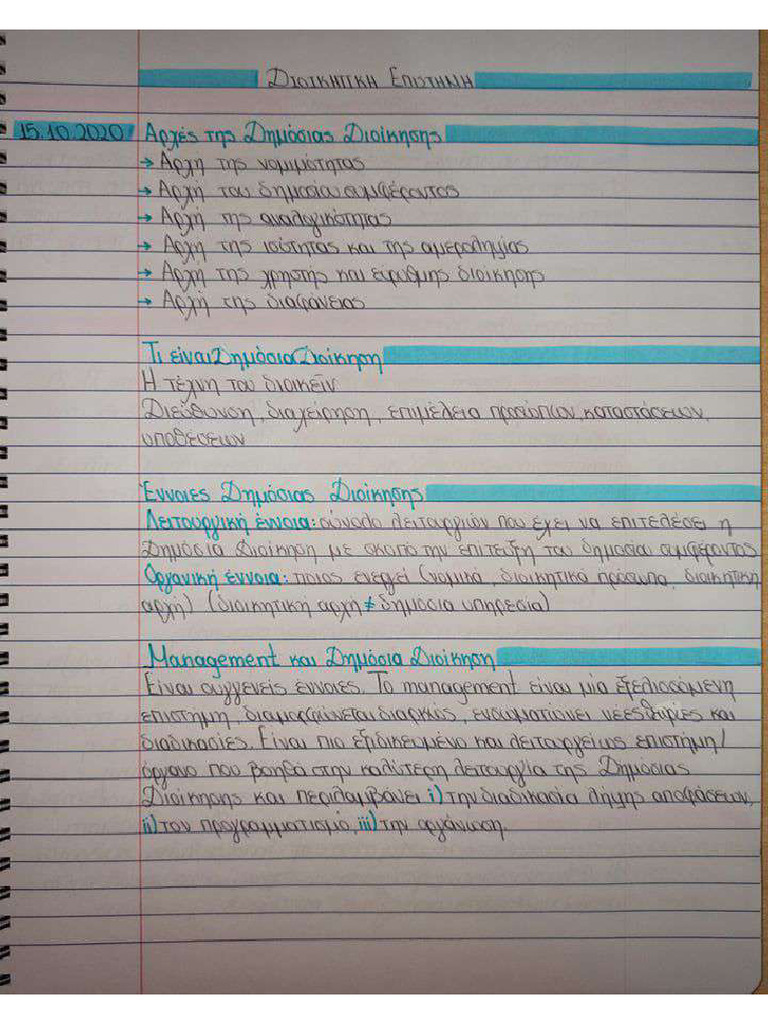 Διοικητική Επιστήμη
15.10.2020 Αρχές της Δημόσιας Διοίκησης
→ Αρχή της νομιμότητας
→ Αρχή του δημοσίου συμφέροντος
→ Αρχή της αναλογικότητας
→ Αρχή της ισότητας και της αμεροληψίας
→ Αρχή της χρηστής και εύρυθμης διοίκησης
→ Αρχή της διαφάνειας
Τι είναι Δημόσια Διοίκηση
Η τέχνη του διοικείν
Διεύθυνση, διαχείρηση, επιμέλεια προσώπων, καταστάσεων,
υποθέσεων
Έννοιες Δημόσιας Διοίκησης
Λειτουργική έννοια: σύνολο λειτουργιών που έχει να επιτελέσει η
Δημόσια Διοίκηση με σκοπό την επίτευξη του δημοσίου συμφέροντος
Οργανική έννοια: ποιος ενεργεί (νομικά, διοικητικά πρόσωπα, διοικητική
αρχή) (διοικητική αρχή ≠ δημόσια υπηρεσία)
Management και Δημόσια Διοίκηση
Είναι συγγενείς έννοιες. Το management είναι μία εξελισσόμενη
επιστήμη, διαμορφώνεται διαρκώς, ενσωματώνει νέες θεωρίες και
διαδικασίες. Είναι πιο εξιδικευμένο και λειτουργεί ως επιστήμη/
όργανο που βοηθά στην καλύτερη λειτουργία της Δημόσιας
Διοίκησης και περιλαμβάνει i) την διαδικασία λήψης αποφάσεων,
ii) τον προγραμματισμό, iii) την οργάνωση.